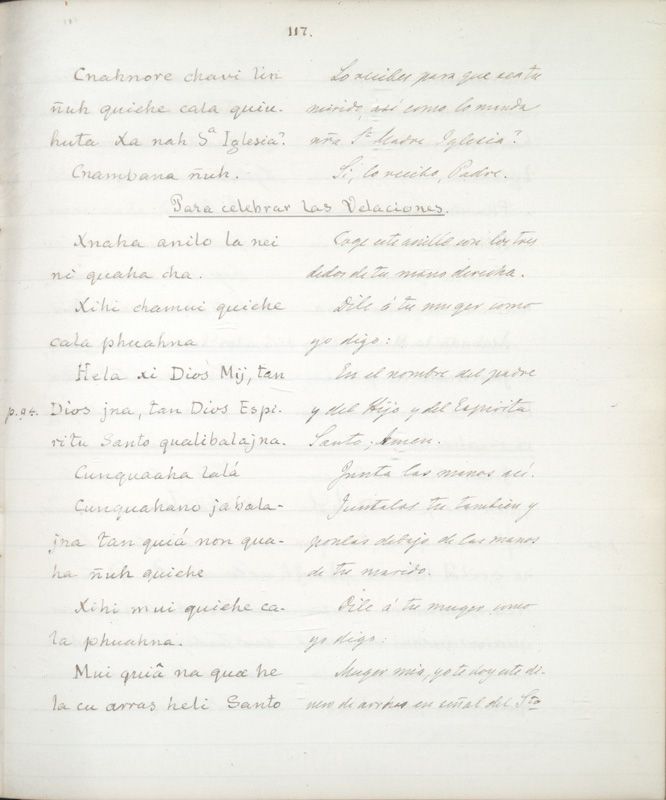 117.
Cnahnore chavi liri
ñuh quiche cala quiu-
huta Xa nah Sa Iglesia?.
Cnambana ñuh.
Lo recibes para que sea tu
marido, así como lo manda
nra. Sta. Madre Iglesia?
Si, lo recibo, Padre.
Para celebrar las Velaciones.
Xnaha anilo la nei
ni quaha cha.
Xihi chamui quiche
cala phuahna
Hela xi Dios Mij, tan
p. 94. Dios jna, tan Dios Espi-
ritu Santo qualibalajna.
Cunquaaha lalá
Cunquahano jabala-
jna tan quiá non qua-
ha ñuh quiche
Xihi mui quiche ca-
la phuahna.
Mui quiâ na quæ he
la cu arras heli Santo
Coge este anillo con los tres
dedos de tu mano derecha.
Dile á tu muger como
yo digo:
En el nombre del padre
y del Hijo y del Espiritu
Santo, Amen.
Junta las manos así.
Juntalas tu tambien y
ponlas debajo de las manos
de tu marido.
Dile á tu muger como
yo digo:
Muger mia, yo te doy este di-
nero de arras en señal del Sto